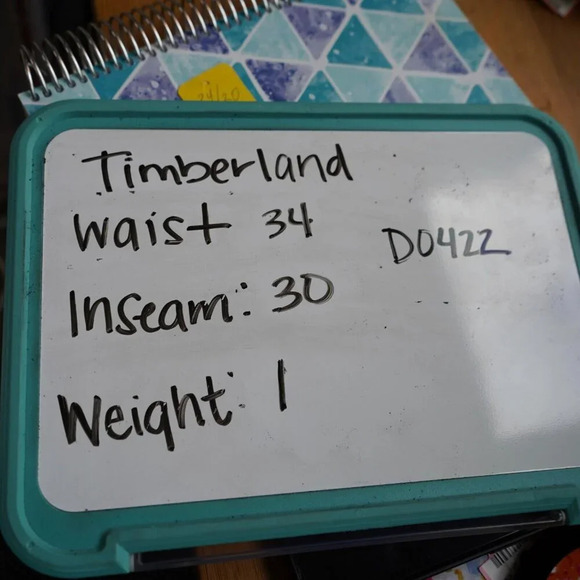 Timberland
Waist 34
D0422
Inseam: 30
Weight: 1